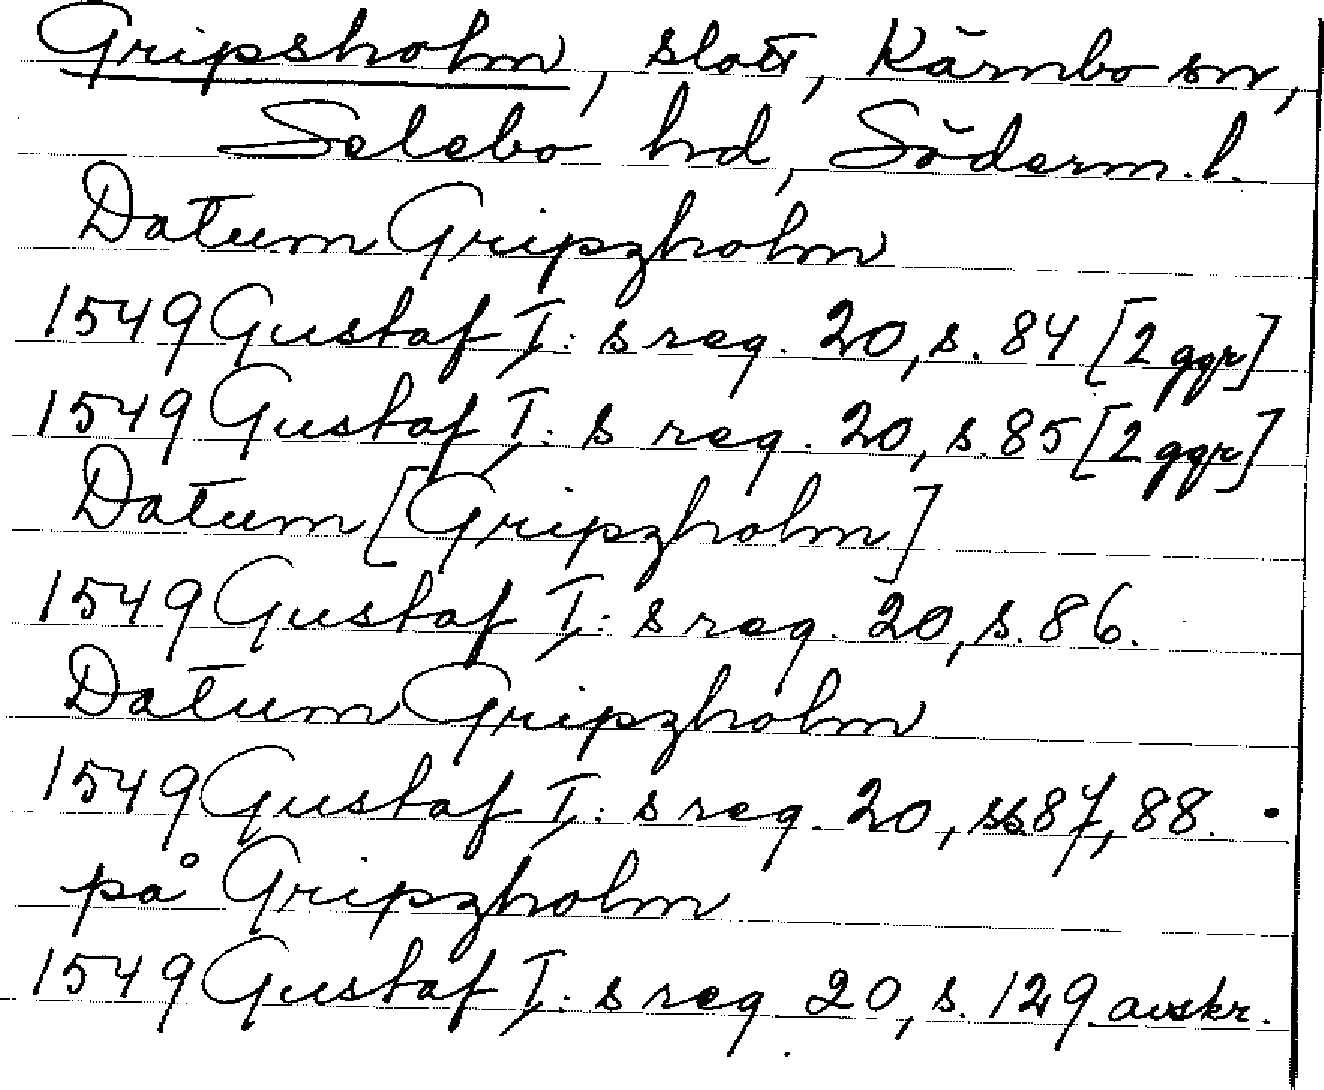 Gripsholm, slott, Kärnbo sn,
Selebo hd, Söderm. l.
Datum Gripzholm
1549 Gustaf I: s reg. 20, s. 84 [2 ggr]
1549 Gustaf I: s reg. 20, s. 85 [2 ggr]
Datum [Gripzholm]
1549 Gustaf I: s reg. 20, s. 86.
Datum Gripzholm
1549 Gustaf I: s reg. 20, ss 87, 88.
på Gripzholm
1549 Gustaf I: s reg 20, s. 129 avskr.